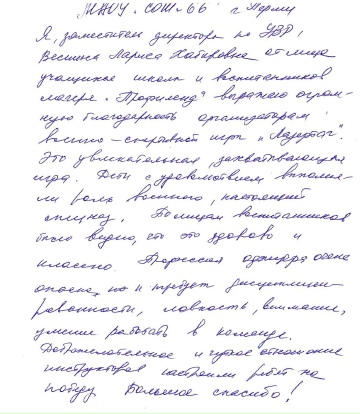 МАОУ "СОШ-66" г. Перми
Я, заместитель директора по УВР,
Веснина Лариса Хабировна от лица
учащихся школы и воспитанников
лагеря "Профиленд" выражаю огром-
ную благодарность организаторам
военно-спортивной игры "Лазертаг".
Это увлекательная, захватывающая
игра. Дети с удовольствием выполня-
ли роль военного, настоящий
спецназ. По лицам воспитанников
было видно, что это здорово и
классно. Взрослая
опасна, но и требует дисциплини-
рованности, ловкость, внимание,
умение работать в команде.
Доброжелательное и чуткое отношение
инструкторов настроили ребят на
победу. Большое спасибо!